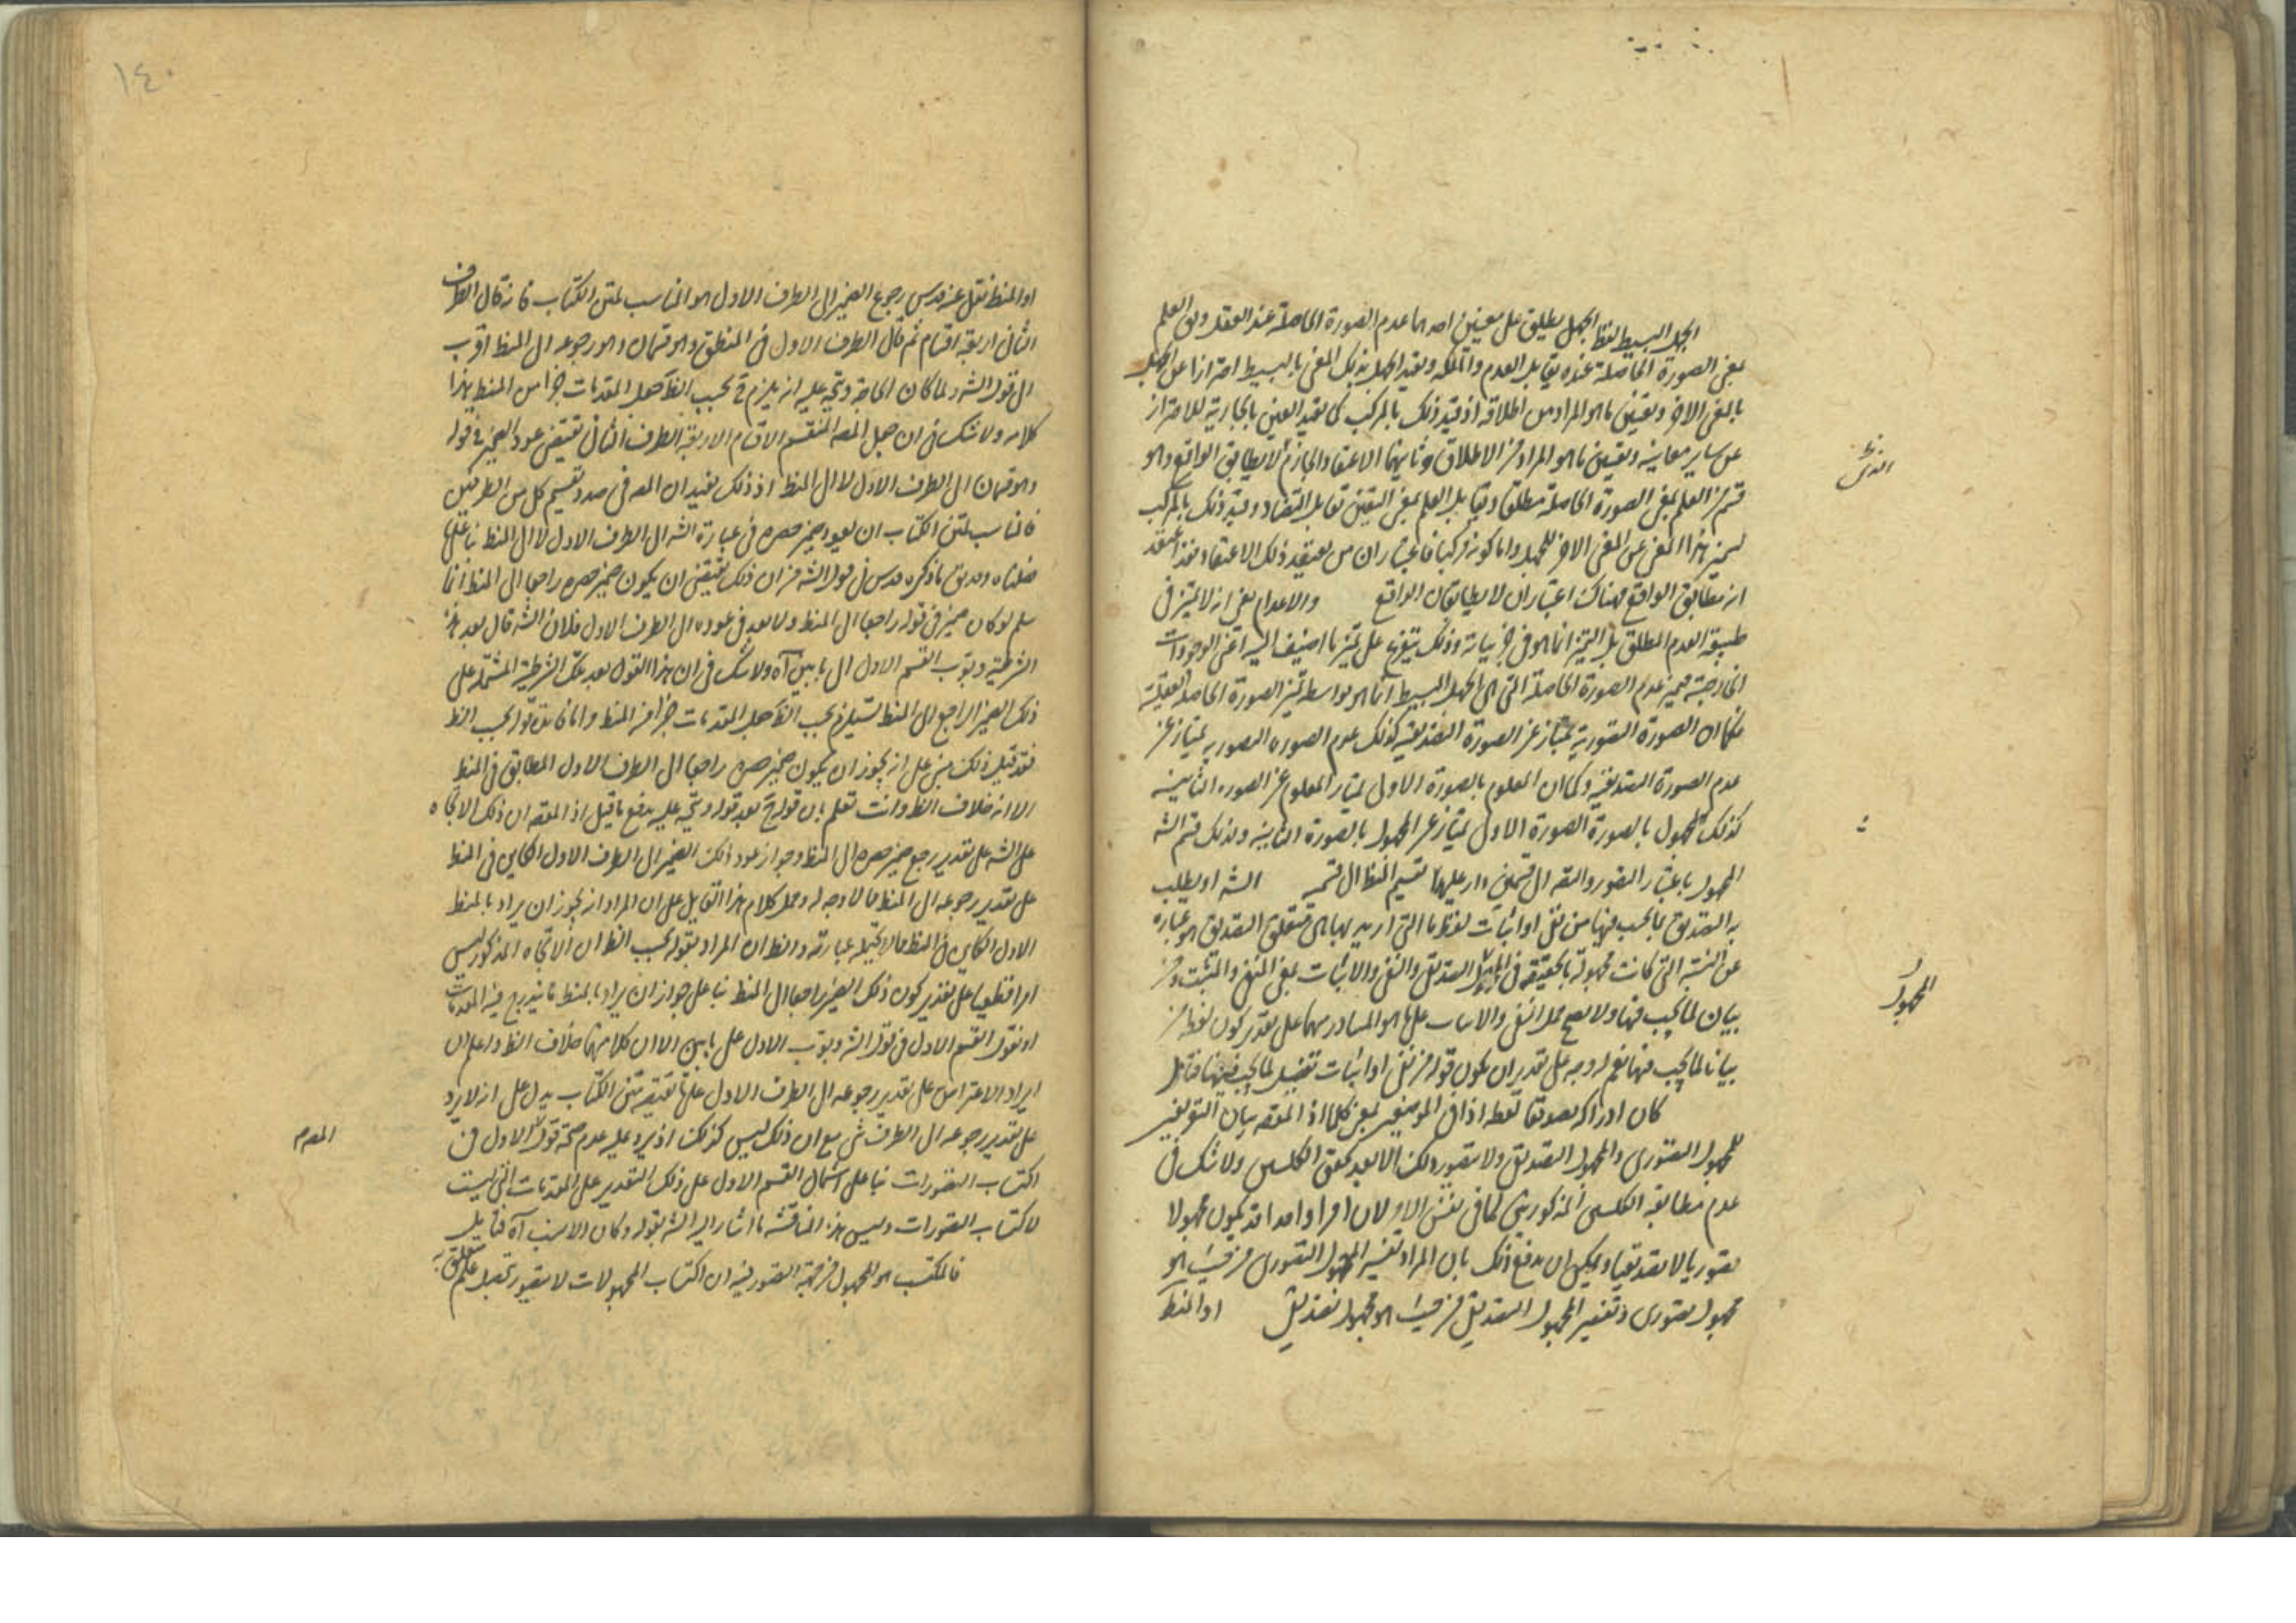 الجهل البسيط لفظ الجهل يطلق على معنيين احدهما عدم الصورة الحاصلة عند العقل وبين العلم
بمعنى الصورة الحاصلة عنده تقابل العدم والملكه ويقيد الجهل بذلك المعنى بالبسيط احترازا عن الجهل
بالمعنى الاخر وتعيين ما هو المراد من اطلاقه اذ قيد ذلك بالمركب كما يقيد العين بالجارية للاحتراز
عن ساير معانيه وتعيين ما هو المراد من الاطلاق وثانيهما الاعتقاد الجازم لا يطابق الواقع وهو
قسم من العلم بمعنى الصورة الحاصلة مطلقا ويقابل العلم بمعنى اليقين تقابل التضاد وقيد ذلك بالمركب
ليميز هذا المعنى عن المعنى الاخر للجهل واما كونه مركبا فاعتبار ان من يعتقد ذلك الاعتقاد فقد اعتقد
انه مطابق الواقع فهناك اعتباران لا يطابقان الواقع والاعدام يعنى انه لا تميز فى
طبيعة العدم المطلق بل التميز انما هو فى جزئياته وذلك يتفرع على تميز ما اضيف اليه اعنى الوجودات
الخارجية فتميز عدم الصورة الحاصلة التى هى الجهل البسيط انما هو بواسطه تميز الصورة الحاصلة العقلية
فكما ان الصورة التصورية تمتاز عن الصورة التصديقية كذلك عدم الصوره التصوريه يمتاز عن
عدم الصورة التصديقية وكما ان المعلوم بالصورة الاولى يمتاز المعلوم عن الصوره الثانيه
كذلك المجهول بالصورة الصورة الاولى يمتاز عن المجهول بالصورة الثانيه ولذلك قسم الشه
المجهول باعتبار التصور والتصد الى قسمين دار عليهما تقسيم المنط الى قسميه الشه او يطلب
به التصديق بما يجب فيها من نفى او اثبات لفظ ما التى اريد بها هى متعلق التصديق هو عباره
عن النسبة التى كانت مجهولة بالحقيقة فى التصديق والنفى والاثبات بمعنى المنفى والمثبت ومن
بيان لما يجب فيها ولا يصح حمل النفى والاثبات على ما هو المتبادر منهما على تقدير كون لفظ من
بيانا لما يجب فيها نعم له وجه على تقدير ان يكون قوله من نفى او اثبات تفصيل لما يجب فيها فتامل
كان ادراكه تصوقا لفظ اذا فى الموضعين بمعنى كلما اذ المقصه بيان التعريف
للمجهول التصورى والمجهول التصديق ولا يتصور ذلك الا بعد تحقق الكلتين ولا شك فى
عدم مطابقة الكلتين المذكورتين لما فى نفس الامر لان امرا واحدا قد يكون مجهولا
تصوريا لا تصديقيا ويمكن ان يدفع ذلك بان المراد تفسير المجهول التصورى من حيث هو
مجهول تصورى وتفسير المجهول التصديق من حيث هو مجهول تصديق او المنط
المجهول
١٤٠
او المنط نقل عنه قدس رجوع الضمير الى الطرف الاول هو المناسب لمتن الكتاب فانه قال الطرف
الثانى اربعة اقسام ثم قال الطرف الاول فى المنطق وهو قسمان وهو رجوعه الى المنط اقرب
الى قول الشه ولما كان الحاجة ويتجه عليه انه يلزم ح بحسب الظ جعل المقدمات جزأ من المنط هذا
كلامه ولا شك فى ان جعل المصه المنقسم الاقسام الاربعة الطرف الثانى يقتضى عود الضمير فى قوله
وهو قسمان الى الطرف الاول لا الى المنط اذ ذلك يفيد ان المصه فى صدد تقسيم كل من الطرفين
فالمناسب لمتن الكتاب ان يعود ضمير حصره فى عبارة الشه الى الطرف الاول لا الى المنط بناء على ما
فصلناه وصدق ما ذكره قدس فى قول الشه من ان ذلك يقتضى ان يكون ضمير حصره راجعا الى المنط انما
سلم لو كان ضمير فى قوله راجعا الى المنط ولا بعد فى عوده الى الطرف الاول فلان الشه قال بعد هذه
الشرطية ورتب القسم الاول الى بابين آه ولا شك فى ان هذا القول بعد تلك الشرطية المشتملة على
ذلك الضمير الراجع الى المنط يستلزم بحسب الظ جعل المقدمات جزأ من المنط وانما قال بحسب الظ
فقد قيل ذلك مبنى على انه يجوز ان يكون ضمير حصره راجعا الى الطرف الاول المطابق فى المنط
الا انه خلاف الظ وانت تعلم بان قوله ح بعد قوله ويتجه عليه يدفع ما قيل اذ المقصه ان ذلك الاتجاه
على الشه على تقدير رجع ضمير حصره الى المنط وجواز عود ذلك الضمير الى الطرف الاول الكاين فى المنط
على تقدير رجوعه الى المنط مما لا وجه له وحمل كلام هذا القايل على ان المراد انه يجوز ان يراد بالمنط
الاول الكاين فى المنط مما لا يحتمله عبارته والظ ان المراد بقوله بحسب الظ ان الاتجاه المذكور ليس
امرا قطعيا على تقدير كون ذلك الضمير راجعا الى المنط بناء على جواز ان يراد بالمنط ما يندرج فيه المقدمات
او نقول القسم الاول فى قول الشه ورتب الاول على بابين الا ان كلا منهما خلاف الظ واعلم ان
ايراد الاعتراض على تقدير رجوعه الى الطرف الاول على ما يقتضيه متن الكتاب يدل على انه لا يرد
على تقدير رجوعه الى الطرف شى مع ان ذلك ليس كذلك اذ يرد عليه عدم صحة قوله الاول فى
اكتساب التصورات بناء على اشتمال القسم الاول على ذلك التقدير على المقدمات التى ليست
لاكتساب التصورات وليس هذه المناقشه ما اشار اليه الشه بقوله وكان الانسب آه فتامل
فالمكتسب هو المجهول من جهة التصور فيه ان اكتساب المجهولات لا يتصور تحصيل علم متعلق به